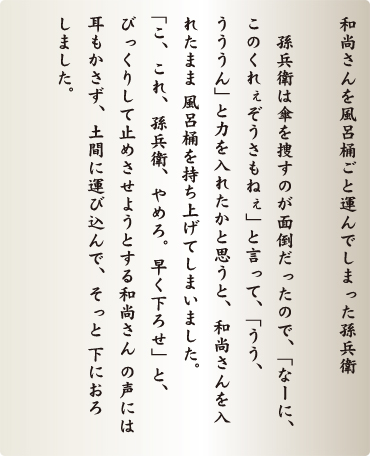 和尚さんを風呂桶ごと運んでしまった孫兵衛
孫兵衛は傘を捜すのが面倒だったので、「なーに、
このくれぇぞうさもねぇ」と言って、「うう、
うううん」と力を入れたかと思うと、 和尚さんを入
れたまま 風呂桶を持ち上げてしまいました。
「こ、これ、孫兵衛、やめろ。早く下ろせ」と、
びっくりして止めさせようとする和尚さん の声には
耳もかさず、土間に運び込んで、そっと 下におろ
しました。